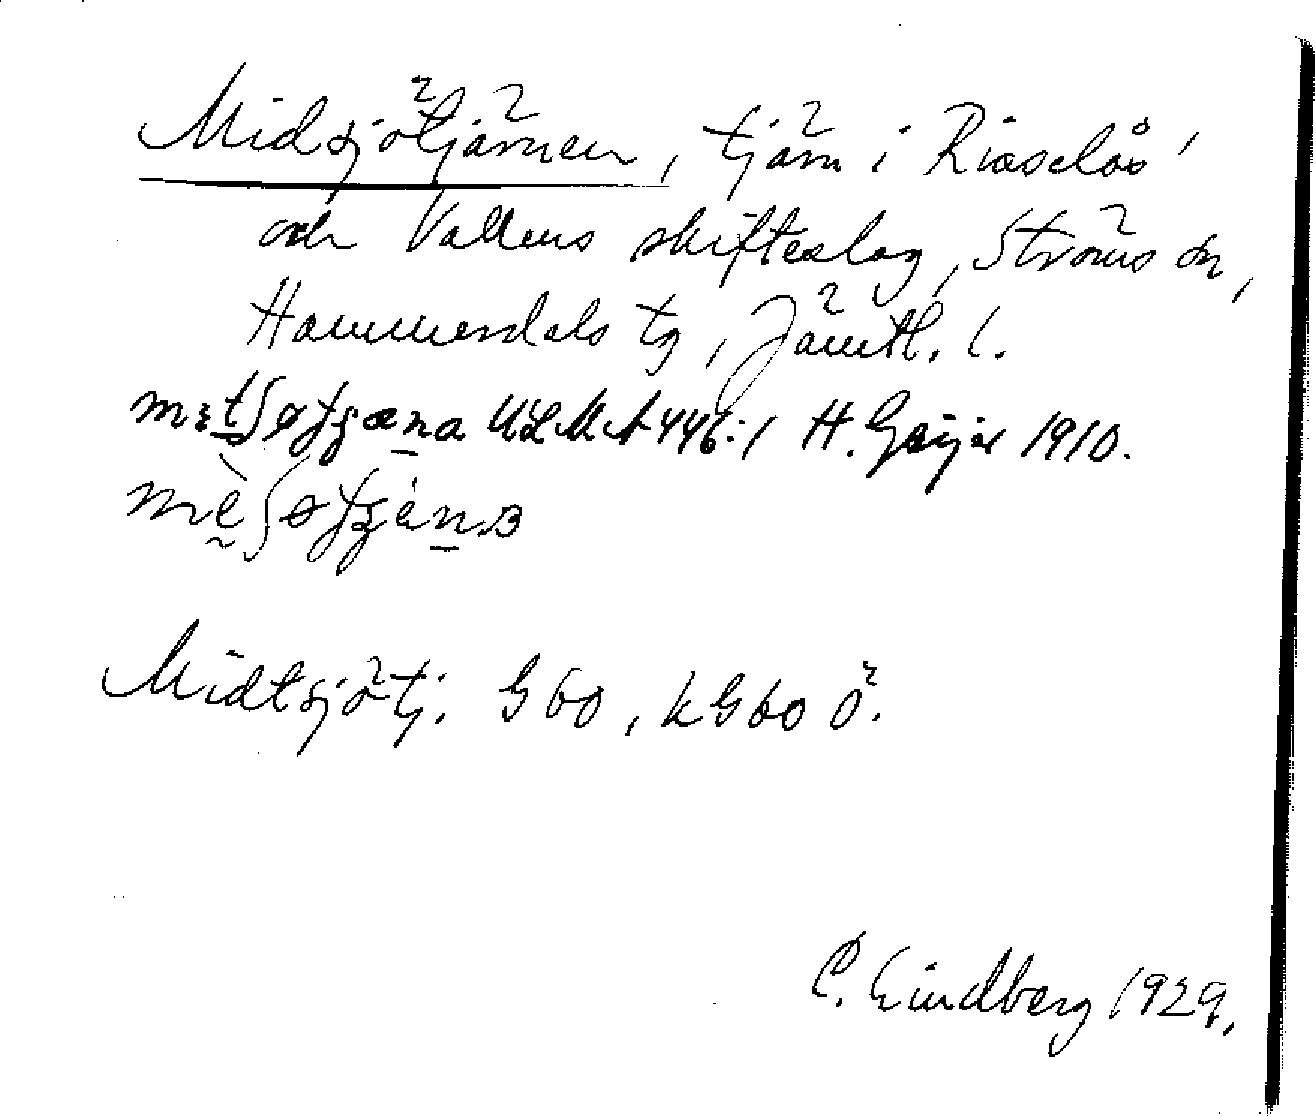 Midsjötjärnen, tjärn i Risselås'
och Vallens skifteslag, Ströms sn,
Hammerdals tg, Jämtl. l.
ULMA 446:1 H. Geijer 1910.
Midtsjötj. G 60, kG 60 ö.
C. Lindberg 1929.